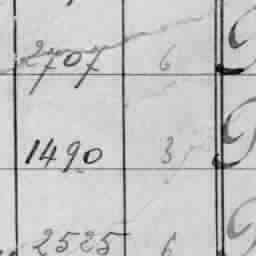 2707 6
1490 3
2525 6